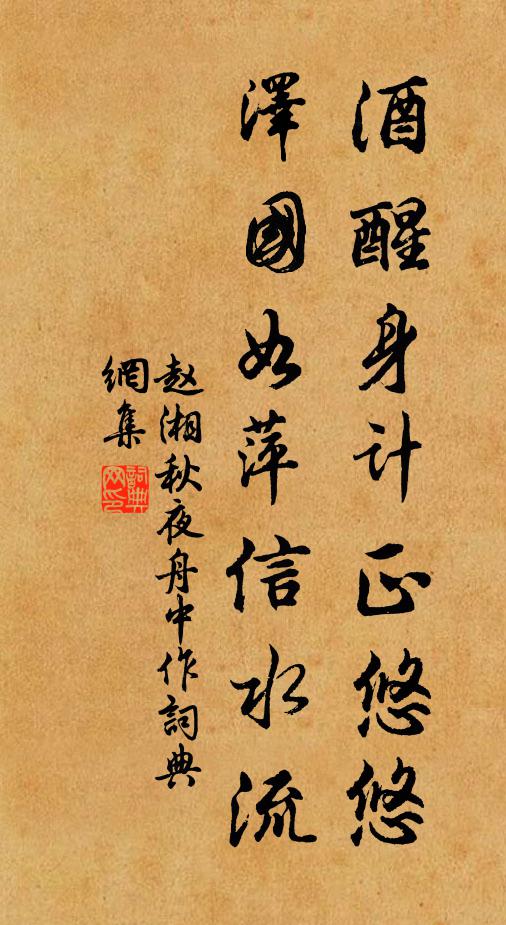 酒醒身计正悠悠
澤國如萍信水流
赵湘秋夜舟中作詞典
網集
詞典
网印